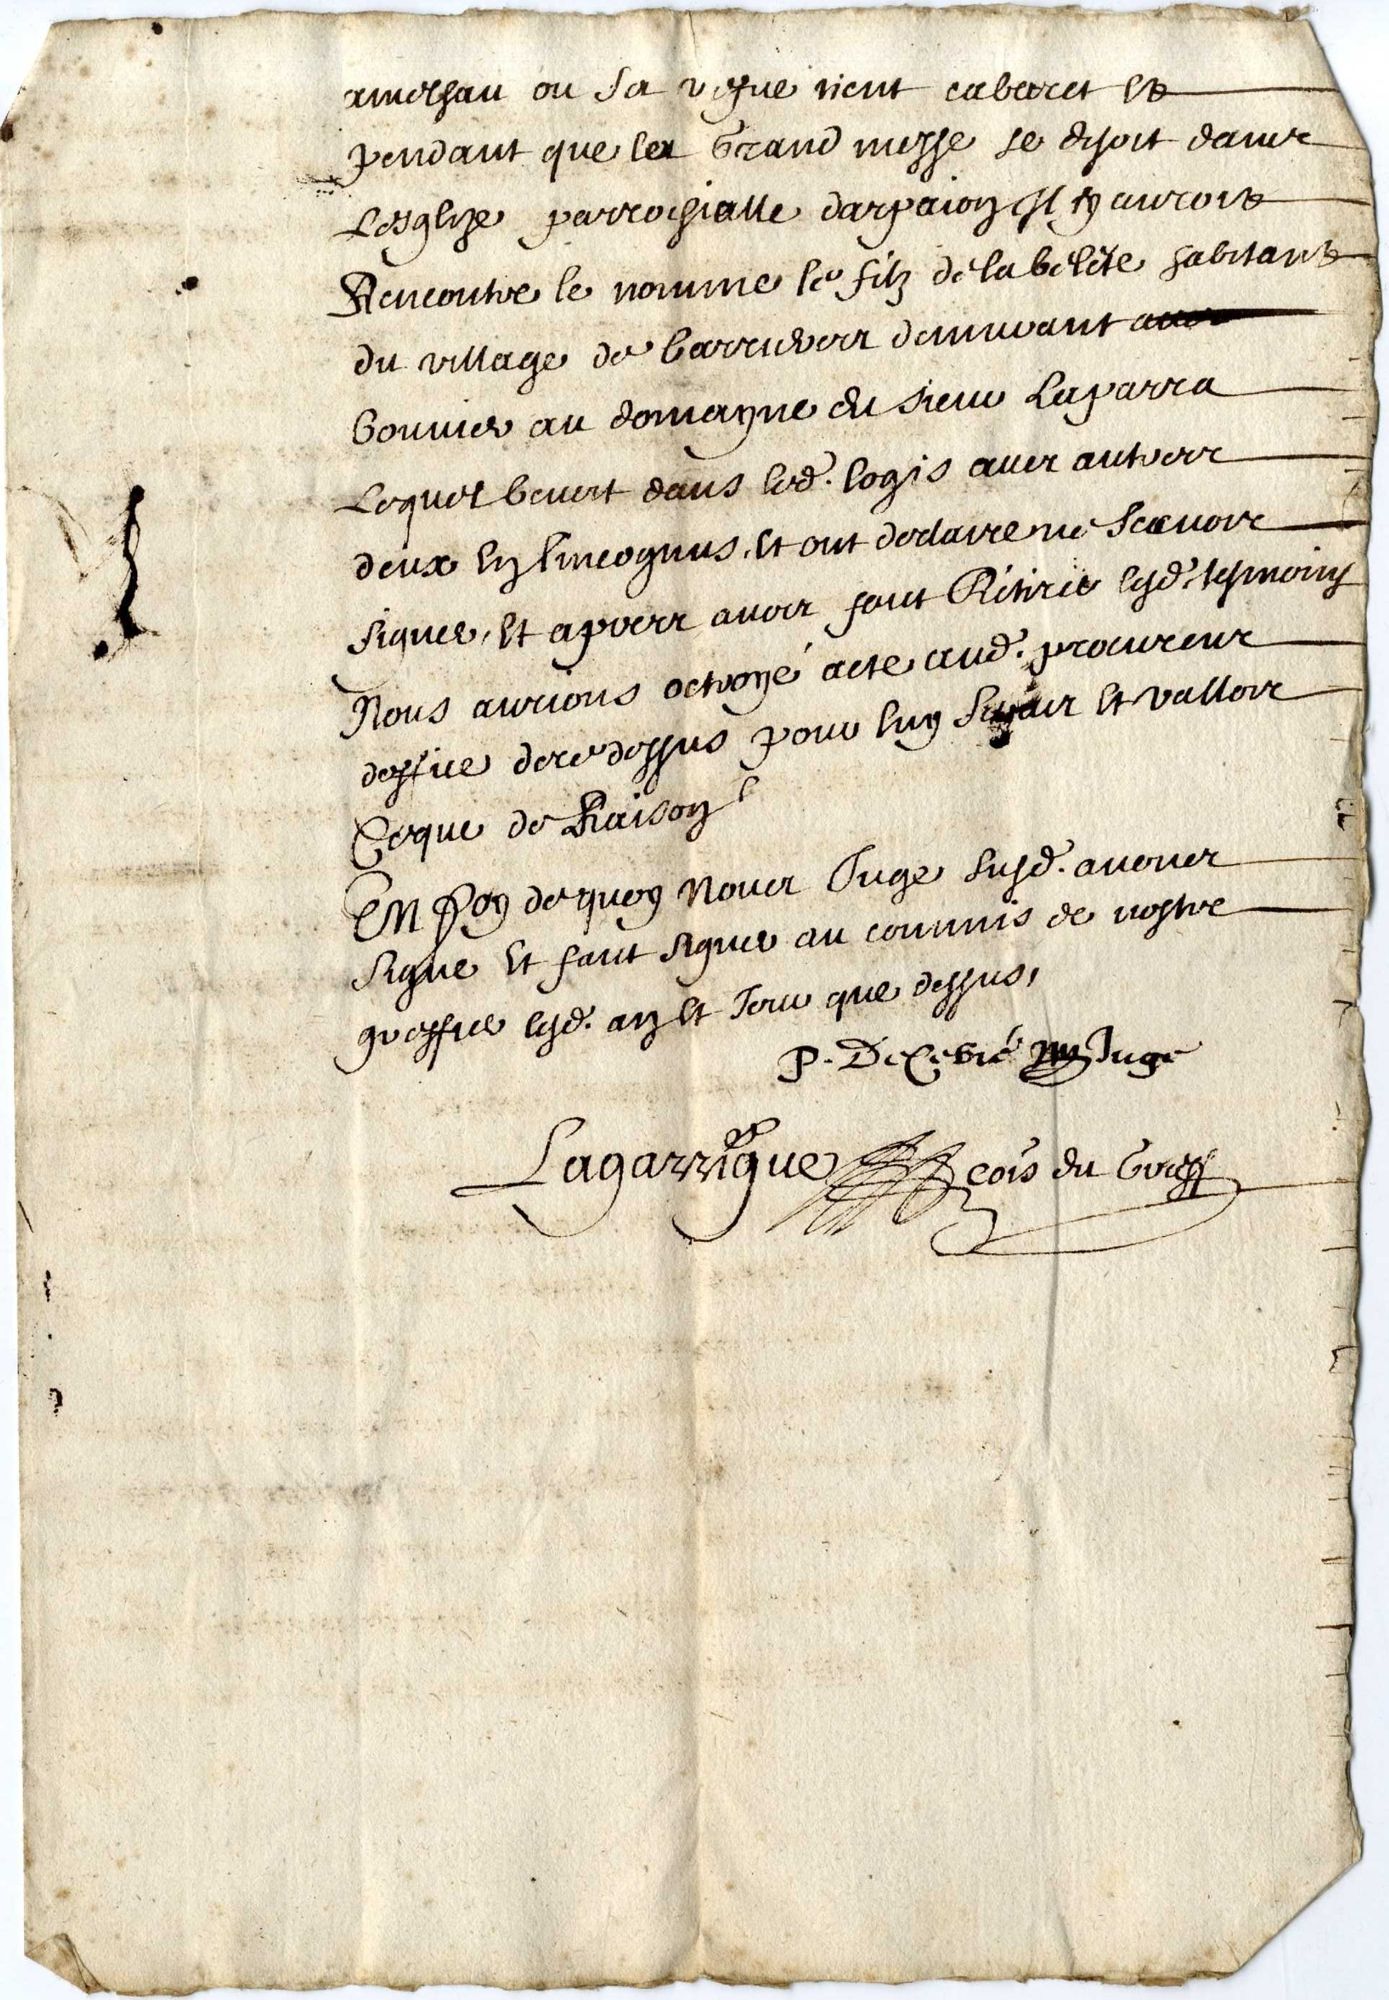 ou sa vefve tient cabaret et
pendant que la Grand messe se disoit dans
Lesglize parrochialle darpaion Il y auroit
Rencontre le nomme le filz de la belete habitant
du village de demurant
bouvier au domayne du sieur Laparra
Lequel bevoit dans led. logis avec autres
deux a luy Incognus, et ont declaire ne scavoir
signer, et apres avoir faict Retirer lesd. tesmoins
Nous aurions octroyé acte aud. procureur
doffice de ce dessus pour luy servir et valloir
Ce que de Raison
EN foy de quoy Nous Juge susd. avons
signe et faict signer au commis de nostre
greffier lesd. an et Jour que dessus,
P. Juge
Lagarrigue cois du Greff